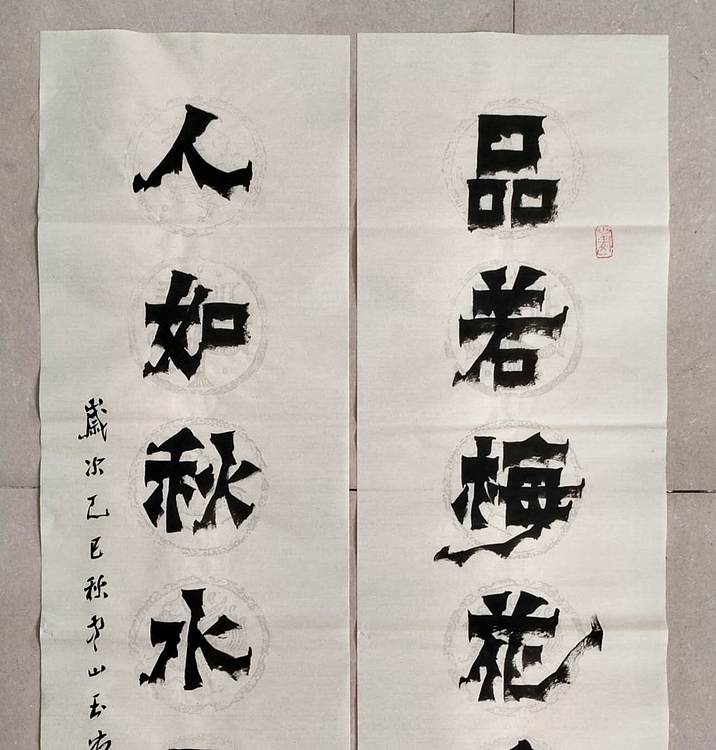 品若梅花
人如秋水
歲次乙巳秋
山玉